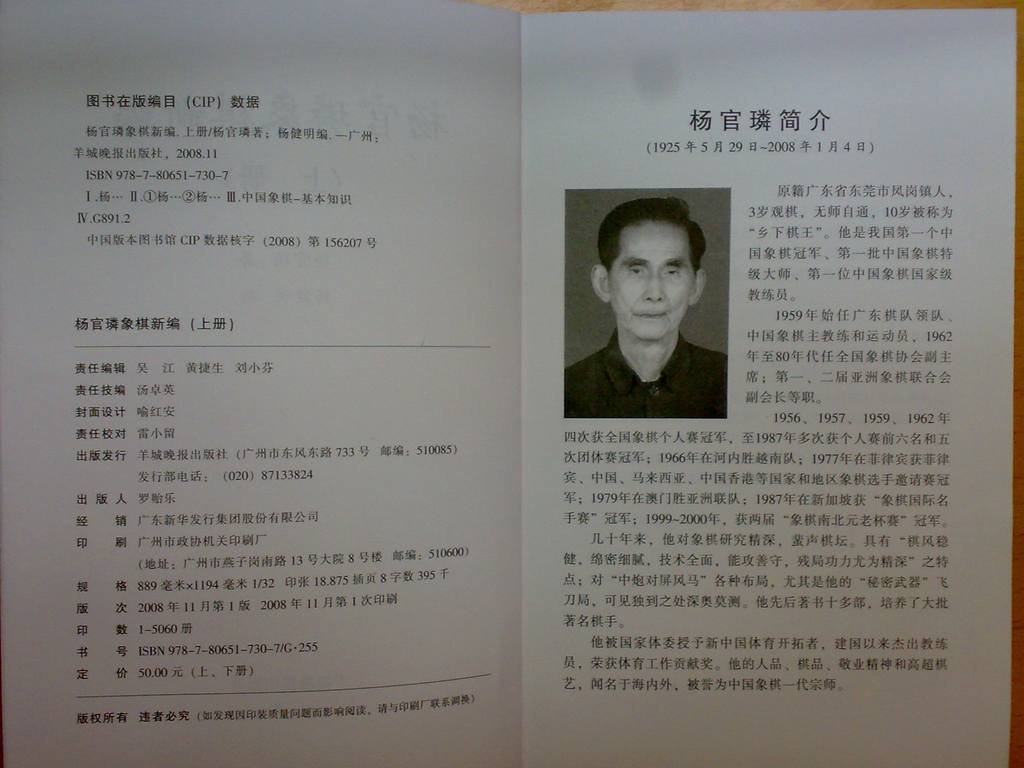 图书在版编目（CIP）数据
杨官璘象棋新编.上册/杨官璘著；杨健明编.—广州：
羊城晚报出版社，2008.11
ISBN 978-7-80651-730-7
Ⅰ.杨… Ⅱ.①杨…②杨… Ⅲ.中国象棋-基本知识
Ⅳ.G891.2
中国版本图书馆 CIP 数据核字（2008）第 156207 号
杨官璘象棋新编（上册）
责任编辑 吴 江 黄捷生 刘小芬
责任技编 汤卓英
封面设计 喻红安
责任校对 雷小留
出版发行 羊城晚报出版社（广州市东风东路 733 号 邮编：510085）
发行部电话：（020）87133824
出 版 人 罗贻乐
经 销 广东新华发行集团股份有限公司
印 刷 广州市政协机关印刷厂
（地址：广州市燕子岗南路 13 号大院 8 号楼 邮编：510600）
规 格 889 毫米×1194 毫米 1/32 印张 18.875 插页 8 字数 395 千
版 次 2008 年 11 月第 1 版 2008 年 11 月第 1 次印刷
印 数 1-5060 册
书 号 ISBN 978-7-80651-730-7/G·255
定 价 50.00 元（上、下册）
版权所有 违者必究（如发现因印装质量问题而影响阅读，请与印刷厂联系调换）
杨官璘简介
（1925 年 5 月 29 日~2008 年 1 月 4 日）
原籍广东省东莞市凤岗镇人，
3岁观棋，无师自通，10岁被称为
“乡下棋王”。他是我国第一个中
国象棋冠军、第一批中国象棋特
级大师、第一位中国象棋国家级
教练员。
1959年始任广东棋队领队、
中国象棋主教练和运动员，1962
年至80年代任全国象棋协会副主
席；第一、二届亚洲象棋联合会
副会长等职。
1956、1957、1959、1962 年
四次获全国象棋个人赛冠军，至1987年多次获个人赛前六名和五
次团体赛冠军；1966年在河内胜越南队；1977年在菲律宾获菲律
宾、中国、马来西亚、中国香港等国家和地区象棋选手邀请赛冠
军；1979年在澳门胜亚洲联队；1987年在新加坡获“象棋国际名
手赛”冠军；1999~2000年，获两届“象棋南北元老杯赛”冠军。
几十年来，他对象棋研究精深，蜚声棋坛。具有“棋风稳
健，绵密细腻，技术全面，能攻善守，残局功力尤为精深”之特
点；对“中炮对屏风马”各种布局，尤其是他的“秘密武器”飞
刀局，可见独到之处深奥莫测。他先后著书十多部，培养了大批
著名棋手。
他被国家体委授予新中国体育开拓者，建国以来杰出教练
员，荣获体育工作贡献奖。他的人品、棋品、敬业精神和高超棋
艺，闻名于海内外，被誉为中国象棋一代宗师。